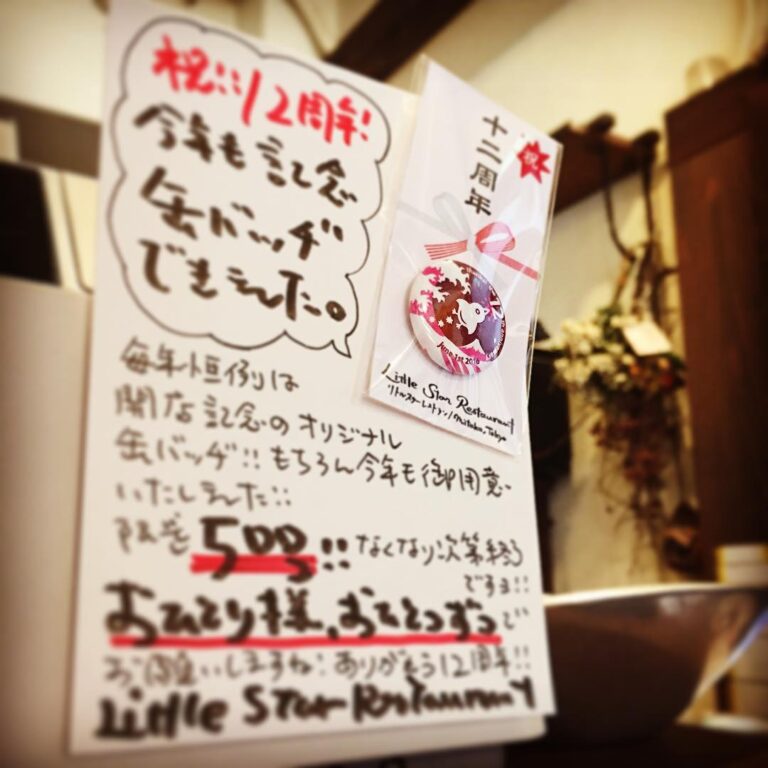 祝!!12周年!
今年も記念
缶バッヂ
できました。
毎年恒例は
開店記念のオリジナル
缶バッヂ!!もちろん今年も御用意
いたしました!!
限定500!!なくなり次第終了
ですヨ!!
おひとり様、おひとつずつで
お願いしますね!ありがとう12周年!!
Little Star Restaurant
祝
十二周年
June 1st 2016
Little Star Restaurant
リトルスターレストラン/Mitaka, Tokyo